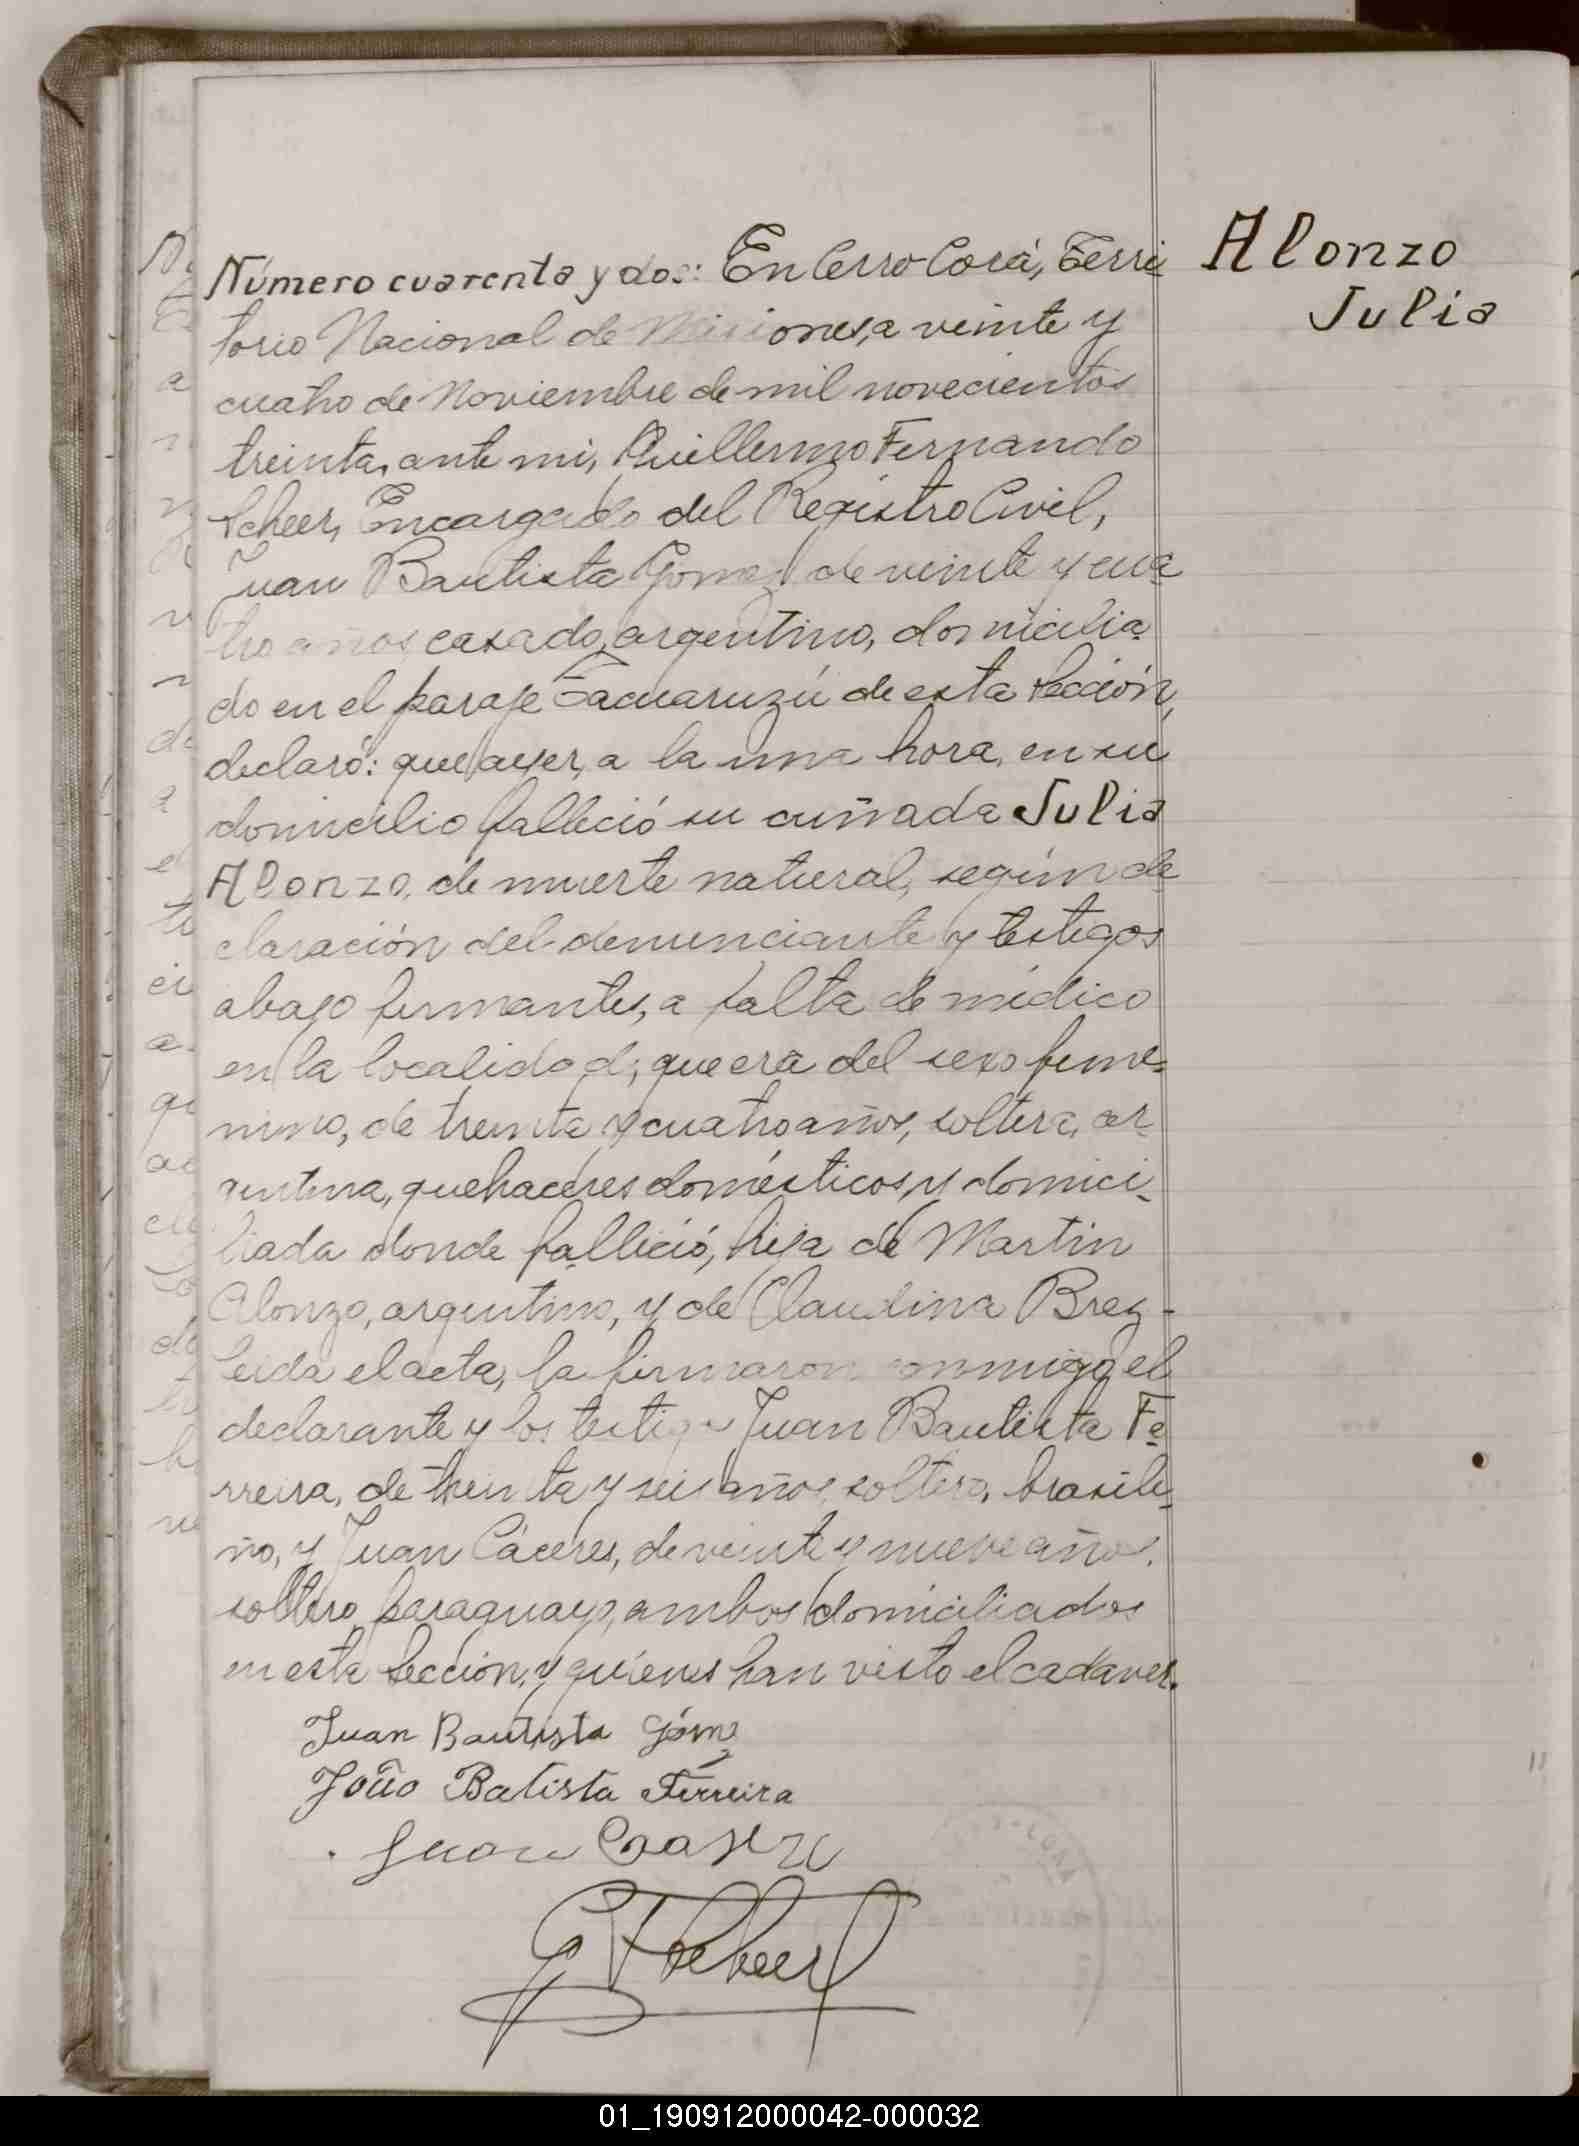 Número cuarenta y dos: En Cerro-Corá, Terri
Alonzo
Julia
torio Nacional de Misiones, a veinte y
cuatro de Noviembre de mil novecientos
treinta, ante mi, Guillermo Fernando
Scheer, Encargado del Registro Civil,
Juan Bautista Gomez de veinte y cua
tro años casado, argentino, domicilia
do en el paraje Tacuaruzú de esta sección,
declaró: que ayer, a la una hora, en su
domicilio falleció su cuñada Julia
Alonzo, de muerte natural, según de
claración del denunciante y testigos
abajo firmantes, a falta de médico
en la localidad; que era del sexo feme-
nino, de treinta y cuatro años, soltera, ar
gentina, quehaceres domésticos, y domici-
liada donde falleció, hija de Martin
Alonzo, argentino, y de Claudina Brez-
Leida el acta, la firmaron conmigo el
declarante y los testigos Juan Bautista Fe
rreira, de treinta y seis años, soltero, brasile-
ño, y Juan Cáceres, de veinte y nueve años,
soltero, paraguayo, ambos domiciliados
en esta sección, y quienes han visto el cadaver.
Juan Bautista Gómez
João Batista Ferreira
Juan
G F Scheer
01_190912000042-000032